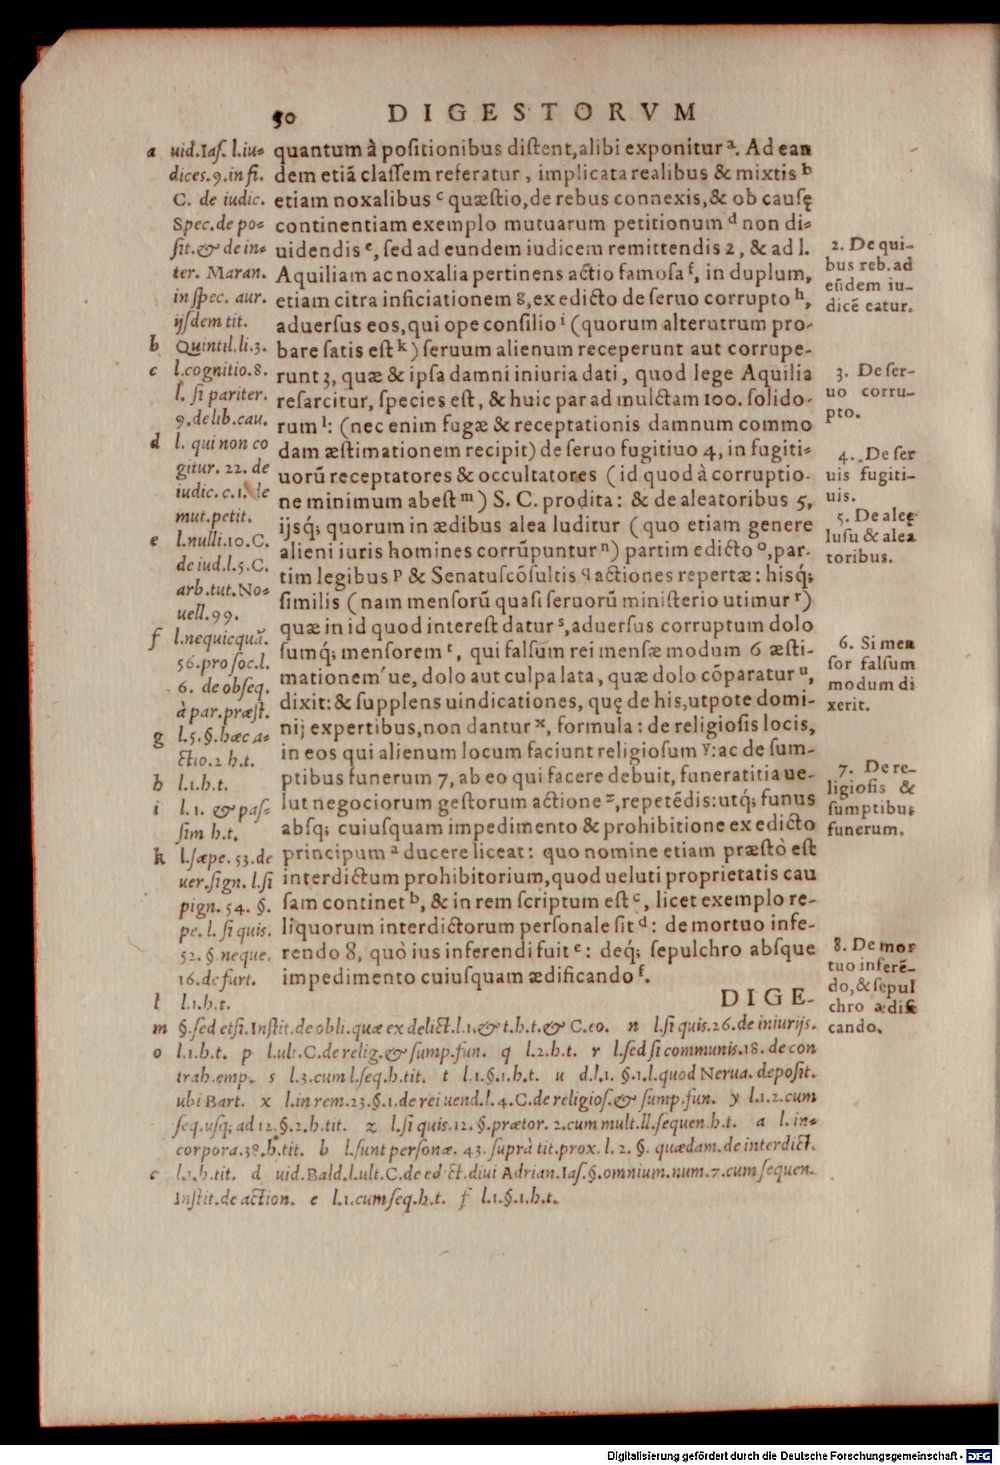 50 DIGESTORVM
quantum à positionibus distent, alibi exponitur a. Ad ean
dem etiā classem referatur, implicata realibus & mixtis b
etiam noxalibus c quæstio, de rebus connexis, & ob causę
continentiam exemplo mutuarum petitionum d non di-
uidendis e, sed ad eundem iudicem remittendis 2, & ad l.
Aquiliam ac noxalia pertinens actio famosa f, in duplum,
etiam citra inficiationem g, ex edicto de seruo corrupto h,
aduersus eos, qui ope consilio i (quorum alterutrum pro-
bare satis est k) seruum alienum receperunt aut corrupe-
runt 3, quæ & ipsa damni iniuria dati, quod lege Aquilia
resarcitur, species est, & huic par ad mulctam 100. solido-
rum l: (nec enim fugæ & receptationis damnum commo
dam æstimationem recipit) de seruo fugitiuo 4, in fugiti-
uorū receptatores & occultatores (id quod à corruptio-
ne minimum abest m) S. C. prodita: & de aleatoribus 5,
ijsq́; quorum in ædibus alea luditur (quo etiam genere
alieni iuris homines corrūpuntur n) partim edicto o, par-
tim legibus p & Senatuscōsultis q actiones repertæ: hisq́;
similis (nam mensorū quasi seruorū ministerio utimur r)
quæ in id quod interest datur s, aduersus corruptum dolo
sumq́; mensorem t, qui falsum rei mensæ modum 6 æsti-
mationem´ue, dolo aut culpa lata, quæ dolo cōparatur u,
dixit: & supplens uindicationes, quę de his, utpote domi-
nij expertibus, non dantur x, formula: de religiosis locis,
in eos qui alienum locum faciunt religiosum y: ac de sum-
ptibus funerum 7, ab eo qui facere debuit, funeratitia ue-
lut negociorum gestorum actione z, repetēdis: utq́; funus
absq́; cuiusquam impedimento & prohibitione ex edicto
principum a ducere liceat: quo nomine etiam præstò est
interdictum prohibitorium, quod ueluti proprietatis cau
sam continet b, & in rem scriptum est c, licet exemplo re-
liquorum interdictorum personale sit d: de mortuo infe-
rendo 8, quò ius inferendi fuit e: deq́; sepulchro absque
impedimento cuiusquam ædificando f.
DIGE-
a uid. Ias. l. iu-
dices. 9. in fi.
C. de iudic.
Spec. de po-
sit. & de in-
ter. Maran.
in spec. aur.
ijsdem tit.
b Quintil. li. 3.
c l. cognitio. 8.
l. si pariter.
9. de lib. cau.
d l. qui non co
gitur. 22. de
iudic. c. 1. de
mut. petit.
e l. nulli. 10. C.
de iud. l. 5. C.
arb. tut. No-
uell. 99.
f l. nequicquā.
56. pro soc. l.
6. de obseq.
à par. præst.
g l. 5. §. hæc a-
ctio. 2 h. t.
h l. 1. h. t.
i l. 1. & pas-
sim h. t.
k l. sæpe. 53. de
uer. sign. l. si
pign. 54. §.
pe. l. si quis.
52. §. neque.
16. de furt.
l l. 1. h. t.
m §. sed etsi. Instit. de obli. quæ ex delict. l. 1. & t. h. t. & C. eo. n l. si quis. 26. de iniurijs.
o l. 1. h. t. p l. ult. C. de relig. & sump. fun. q l. 2. h. t. r l. sed si communis. 18. de con
trah. emp. s l. 3. cum l. seq. h. tit. t l. 1. §. 1. h. t. u d. l. 1. §. 1. l. quod Nerua. deposit.
ubi Bart. x l. in rem. 23. §. 1. de rei uend. l. 4. C. de religios. & sump. fun. y l. 1. 2. cum
seq. usq́; ad 12. §. 2. h. tit. z l. si quis. 12. §. prætor. 2. cum mult. ll. sequen. h. t. a l. in-
corpora. 38. h. tit. b l. sunt personæ. 43. suprà tit. prox. l. 2. §. quædam. de interdict.
c l. 1. h. tit. d uid. Bald. l. ult. C. de edict. diui Adrian. Ias. §. omnium. num. 7. cum sequen.
Instit. de action. e l. 1. cum seq. h. t. f l. 1. §. 1. h. t.
2. De qui-
bus reb. ad
eūdem iu-
dicē eatur.
3. De ser-
uo corru-
pto.
4. De ser
uis fugiti-
uis.
5. De aleę
lusu & alea
toribus.
6. Si men
sor falsum
modum di
xerit.
7. De re-
ligiosis &
sumptibus
funerum.
8. De mor
tuo inferē-
do, & sepul
chro ædifi
cando.
Digitalisierung gefördert durch die Deutsche Forschungsgemeinschaft - DFG